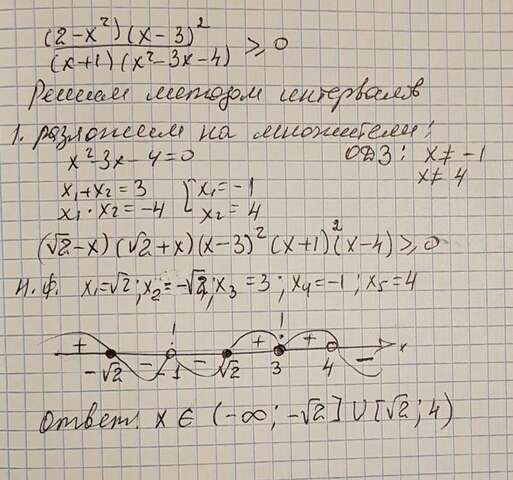 (2-x²)(x-3)² / (x+1)(x²-3x-4) ≥ 0
Решим методом интервалов
1. разложим на множители:
x²-3x-4=0 ОДЗ: x≠-1
x₁+x₂=3 { x₁=-1 x≠4
x₁·x₂=-4 x₂=4
(√2-x)(√2+x)(x-3)²(x+1)²(x-4)≥0
Н.ф. x₁=√2; x₂=-√2; x₃=3; x₄=-1; x₅=4
+ - - + + - x
-√2 -1 √2 3 4
Ответ: x∈(-∞;-√2]∪[√2;4)